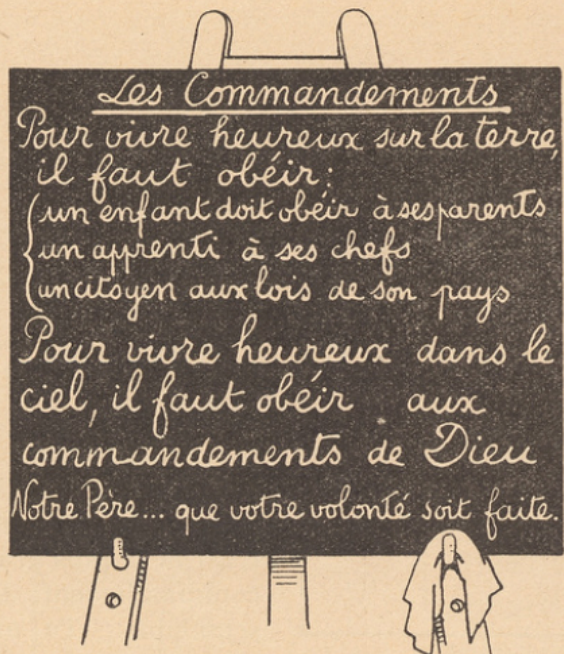 Les Commandements
Pour vivre heureux sur la terre,
il faut obéir;
un enfant doit obéir à ses parents
un apprenti à ses chefs
un citoyen aux lois de son pays
Pour vivre heureux dans le
ciel, il faut obéir aux
commandements de Dieu
Notre Père... que votre volonté soit faite.